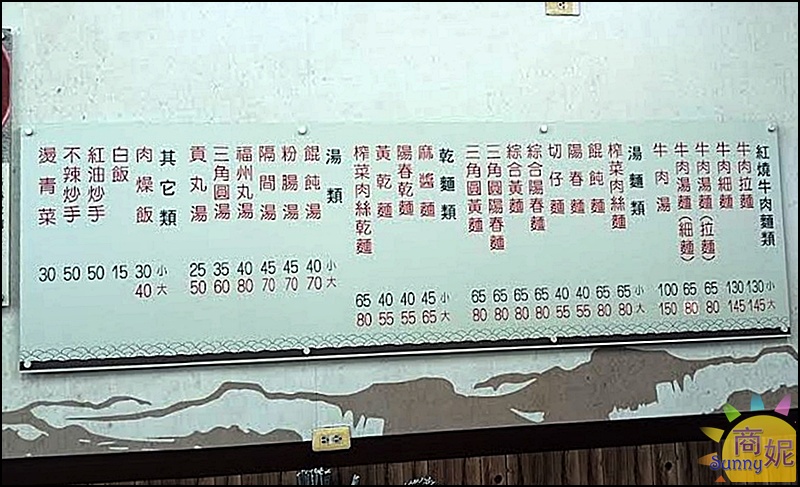 紅燒牛肉麵類 小 大
牛肉拉麵 130 145
牛肉細麵 130 145
牛肉湯麵(拉麵) 65 80
牛肉湯麵(細麵) 65 80
牛肉湯 100 150
湯麵類 小 大
榨菜肉絲麵 65 80
餛飩麵 65 80
陽春麵 40 55
切仔麵 40 55
綜合陽春麵 65 80
綜合黃麵 65 80
三角圓陽春麵 65 80
三角圓黃麵 65 80
乾麵類 小 大
麻醬麵 45 65
陽春乾麵 40 55
黃乾麵 40 55
榨菜肉絲乾麵 65 80
湯類 小 大
餛飩湯 40 70
粉腸湯 45 70
隔間湯 45 70
福州丸湯 40 80
三角圓湯 35 60
貢丸湯 25 50
其它類 小 大
肉燥飯 30 40
白飯 15
紅油炒手 50
不辣炒手 50
燙青菜 30
商妮
Sunny